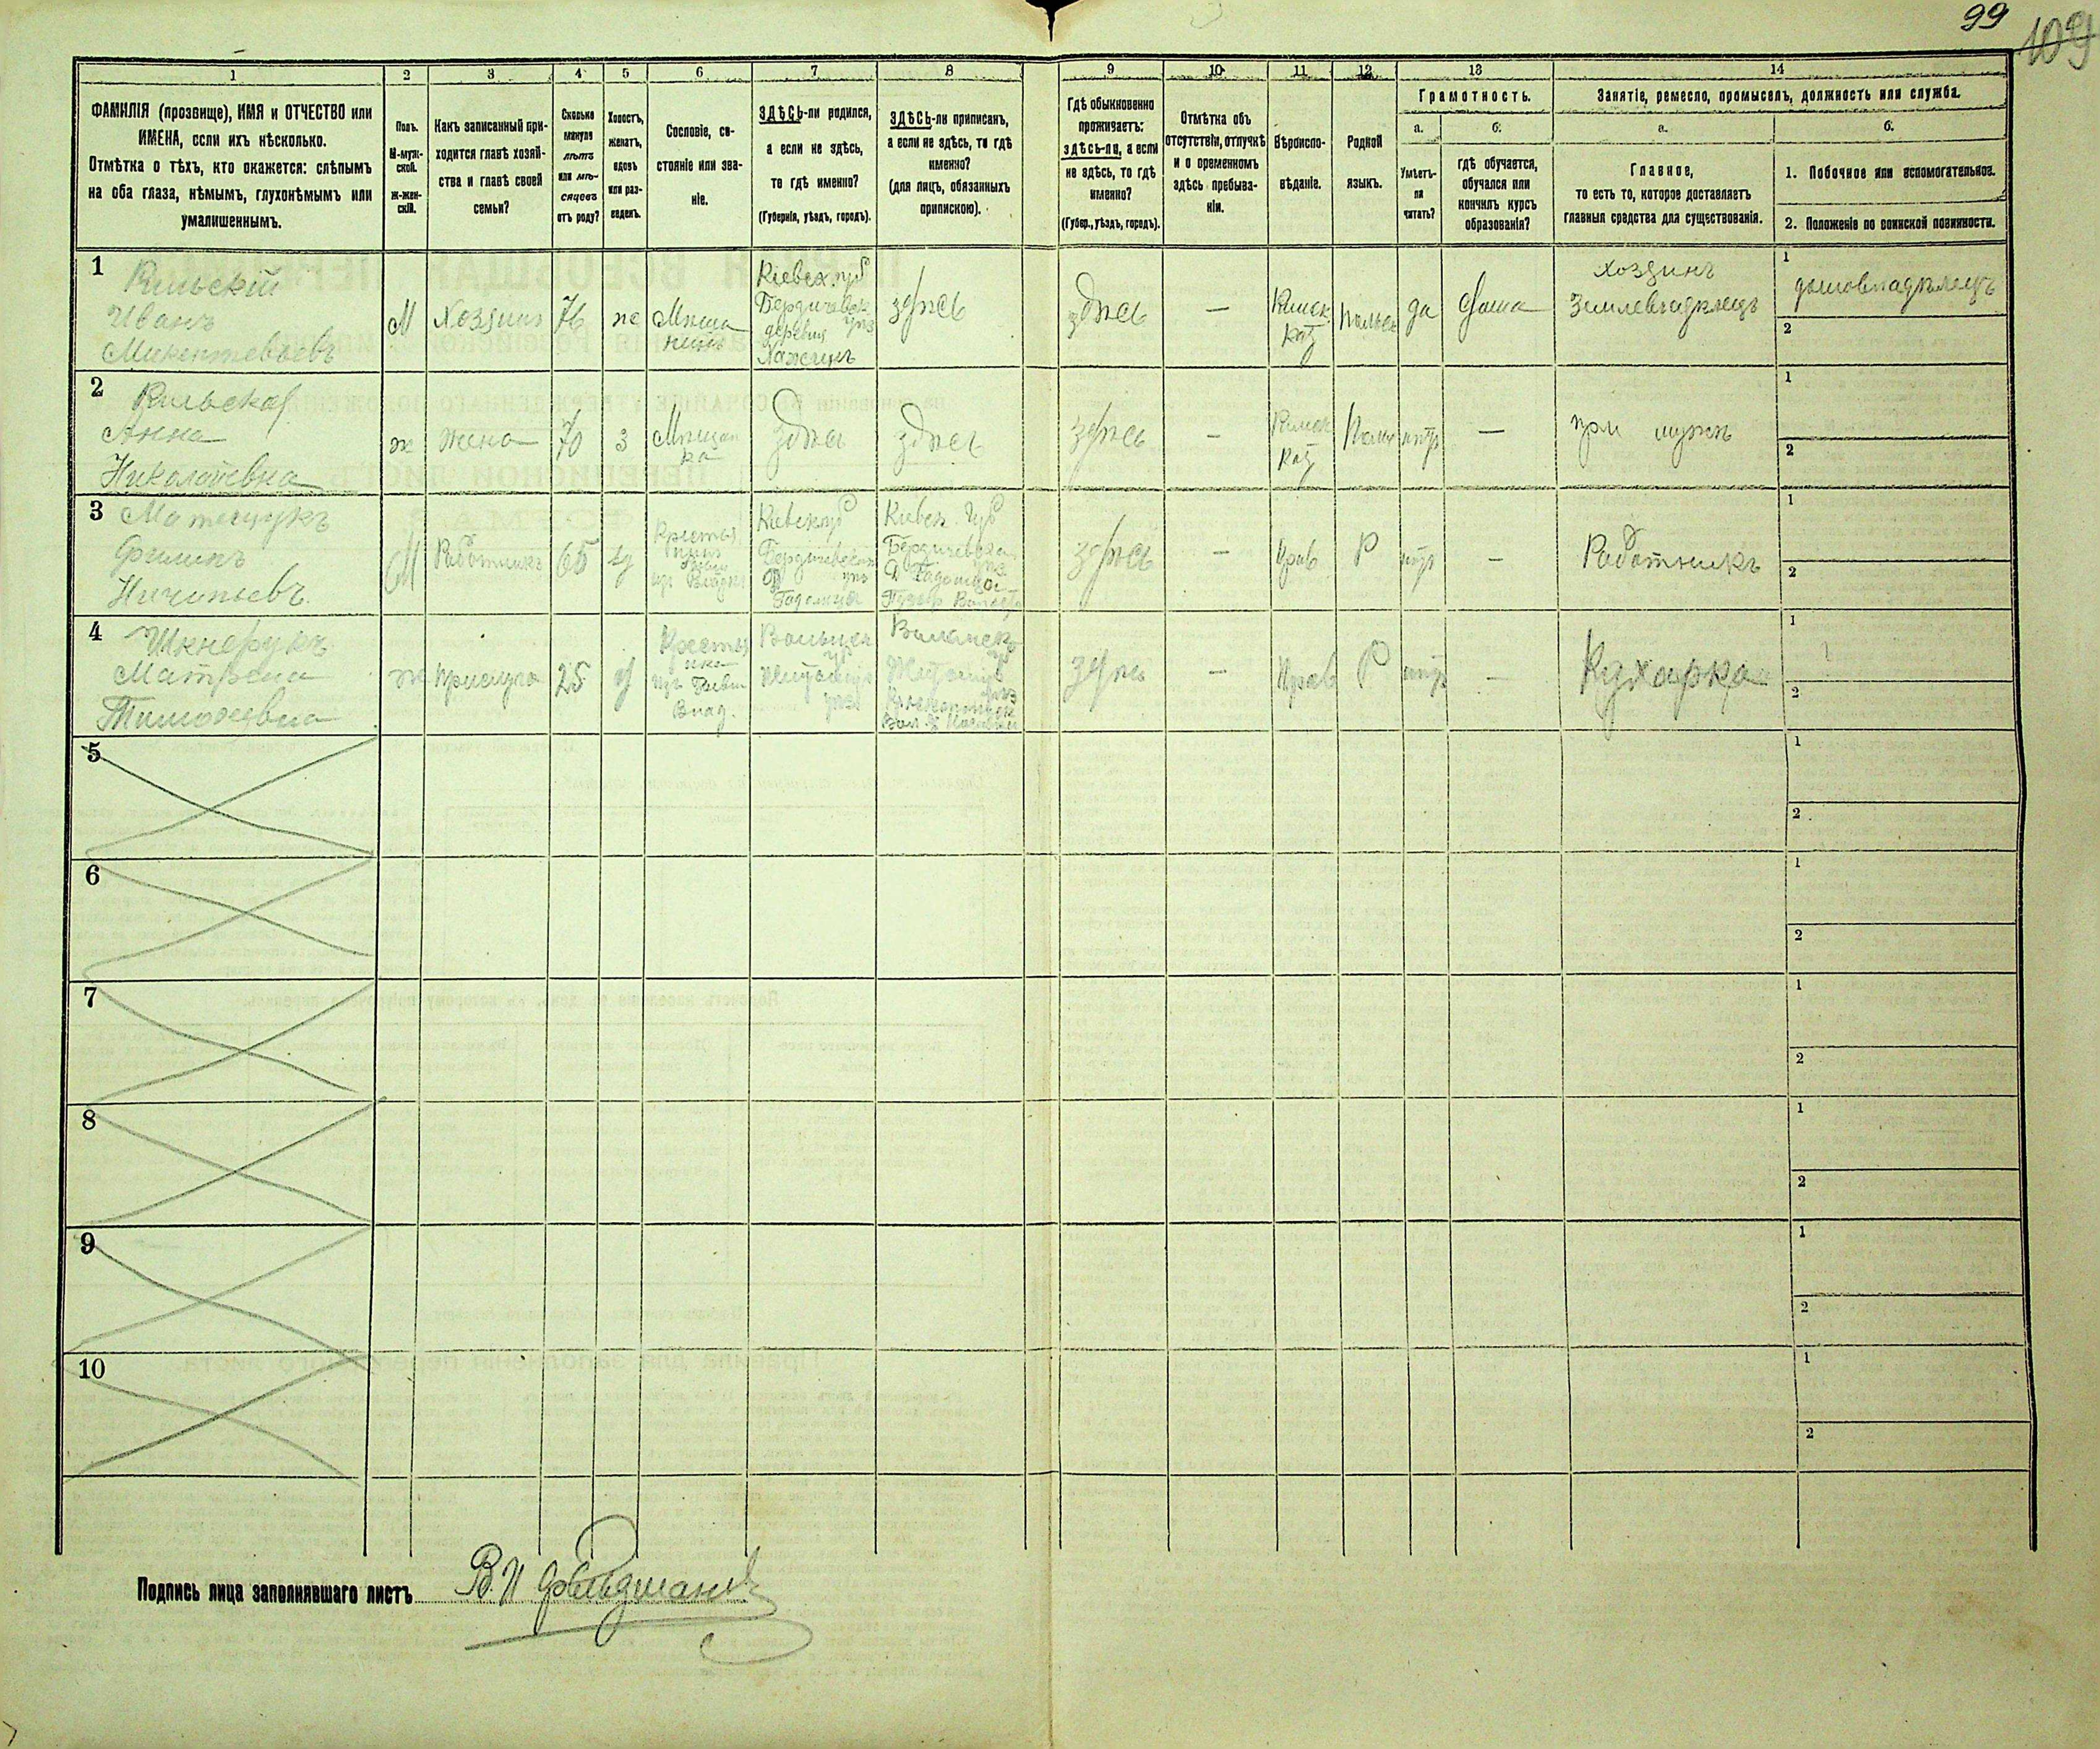 99
109
1 2 3 4 5 6 7 8 9 10 11 12 13 14
ФАМИЛІЯ (прозвище), ИМЯ и ОТЧЕСТВО или
ИМЕНА, если ихъ нѣсколько.
Отмѣтка о тѣхъ, кто окажется: слѣпымъ
на оба глаза, нѣмымъ, глухонѣмымъ или
умалишеннымъ.
Полъ.
М-муж-
ской.
ж-жен-
скій.
Какъ записанный при-
ходится главѣ хозяй-
ства и главѣ своей
семьи?
Сколько
минуло
лѣтъ
или мѣ-
сяцевъ
отъ роду?
Холостъ,
женатъ,
вдовъ
или раз-
веденъ.
Сословіе, со-
стояніе или зва-
ніе.
ЗДѢСЬ-ли родился,
а если не здѣсь,
то гдѣ именно?
(Губернія, уѣздъ, городъ).
ЗДѢСЬ-ли приписанъ,
а если не здѣсь, то гдѣ
именно?
(для лицъ, обязанныхъ
припискою).
Гдѣ обыкновенно
проживаетъ:
здѣсь-ли, а если
не здѣсь, то гдѣ
именно?
(Губер., уѣздъ, городъ).
Отмѣтка объ
отсутствіи, отлучкѣ
и о временномъ
здѣсь пребыва-
ніи.
Вѣроиспо-
вѣданіе.
Родной
языкъ.
Грамотность.
а.
Умѣетъ-
ли
читать?
б.
гдѣ обучается,
обучался или
кончилъ курсъ
образованія?
Занятіе, ремесло, промыселъ, должность или служба.
а.
Главное,
то есть то, которое доставляетъ
главныя средства для существованія.
б.
1. Побочное или вспомогательное.
2. Положеніе по воинской повинности.
1
Иванъ
М
Хозяинъ
76
же
Мѣща
нинъ
Кіевск. губ
Бердичевск
уѣз
деревня
здѣсь
здѣсь
—
Римск
кат
Польск
да
дома
хозяинъ
землевладѣлецъ
1
домовладѣлецъ
2
2
Анна
Николаевна
ж
жена
70
з
Мѣщан
ка
здѣсь
здѣсь
здѣсь
—
Римск
кат
нѣтъ
—
при мужѣ
1
2
3
Филипъ
М
Работникъ
65
Кіевск губ
Бердичевск
уѣз
Кіевск. Губ
Бердичевск
уѣз
здѣсь
—
Прав
Р
нѣтъ
—
Работникъ
1
2
4
Матрена
Тимофевна
ж
прислуга
25
Волынск
губ
Житомір
уѣз
Волынск
губ
Житомір
уѣз
здѣсь
—
Прав
Р
нѣтъ
—
Кухарка
1
2
5
1
2
6
1
2
7
1
2
8
1
2
9
1
2
10
1
2
Подпись лица заполнявшаго листъ В. И. Фельдманъ